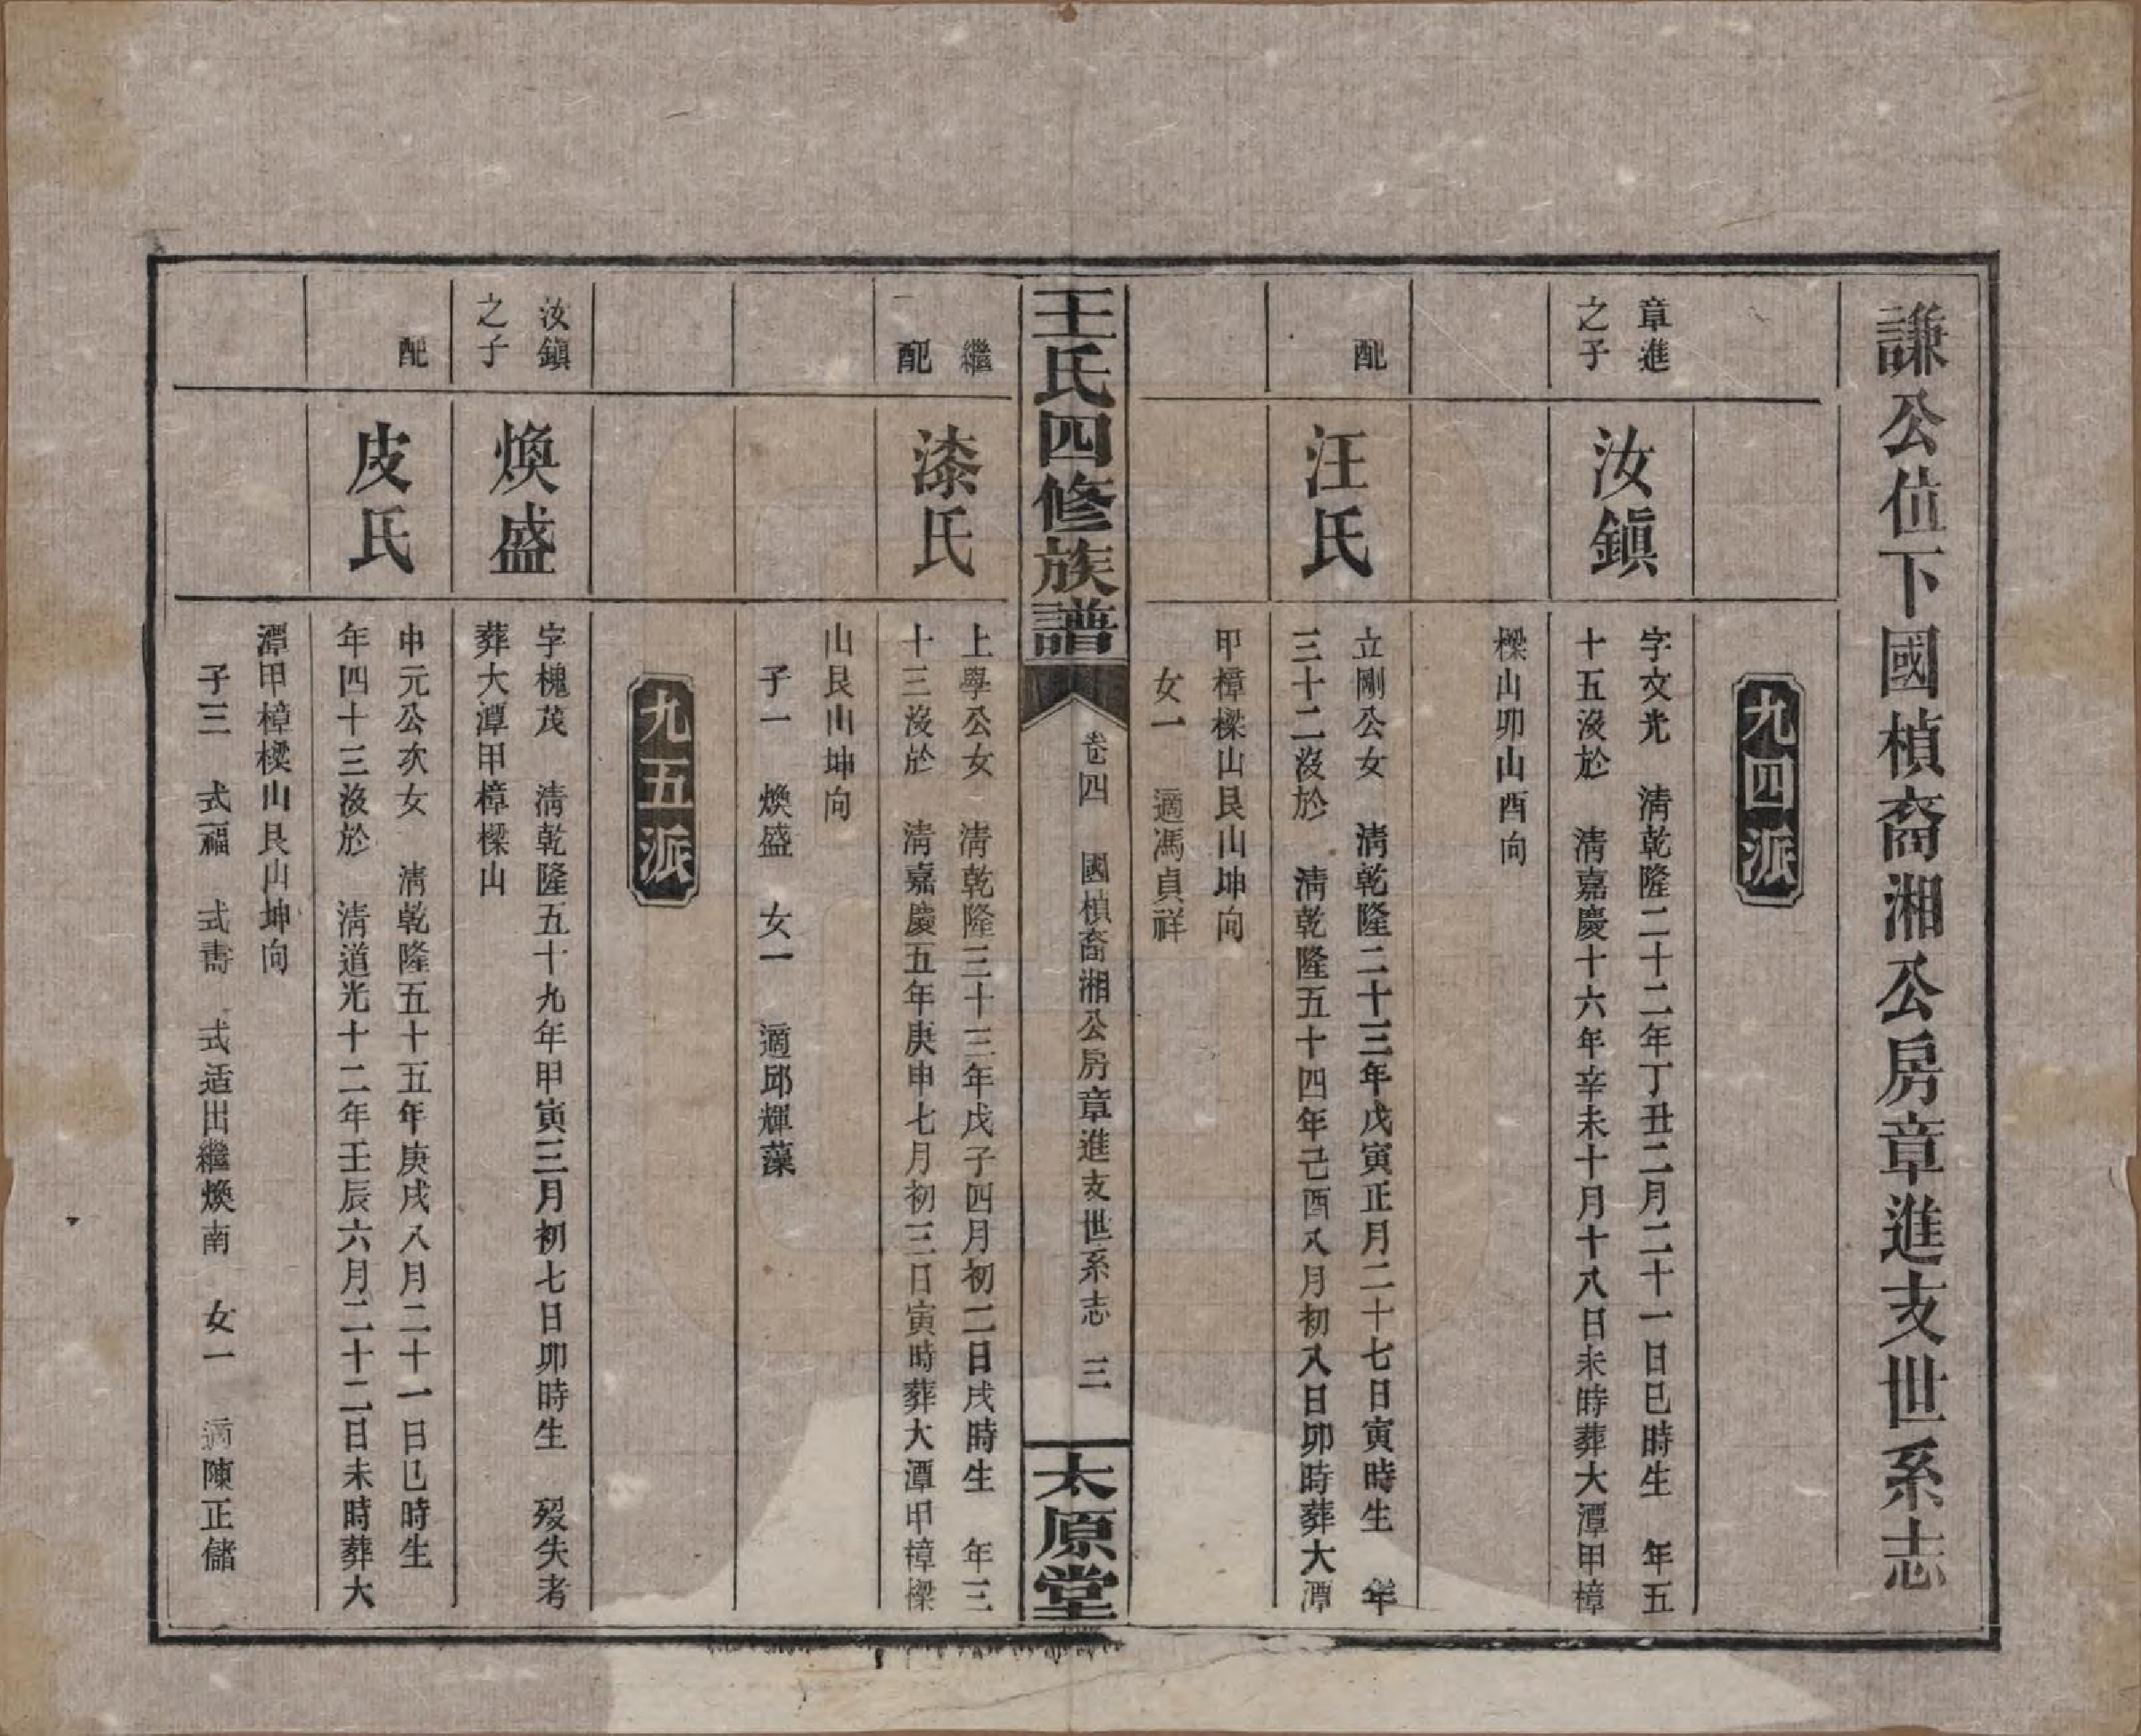 謙公位下國楨裔湘公房章進支世系志
九四派
章進
之子
汝鎭
字文光　淸乾隆二十二年丁丑二月二十一日巳時生　年五
十五沒於　淸嘉慶十六年辛未十月十八日未時葬大潭甲樟
樑山卯山酉向
配
汪氏
立剛公女　淸乾隆二十三年戊寅正月二十七日寅時生　年
三十二沒於　淸乾隆五十四年己酉八月初八日卯時葬大潭
甲樟樑山艮山坤向
女一　適馮貞祥
王氏四修族譜
卷四　國楨裔湘公房章進支世系志　三
太原堂
繼
配
漆氏
上學公女　淸乾隆三十三年戊子四月初二日戌時生　年三
十三沒於　淸嘉慶五年庚申七月初三日寅時葬大潭甲樟樑
山艮山坤向
子一　煥盛　女一　適邱輝藻
九五派
汝鎭
之子
煥盛
字槐茂　淸乾隆五十九年甲寅三月初七日卯時生　歿失考
葬大潭甲樟樑山
配
皮氏
申元公次女　淸乾隆五十五年庚戌八月二十一日巳時生
年四十三沒於　淸道光十二年壬辰六月二十二日未時葬大
潭甲樟樑山艮山坤向
子三　式福　式壽　式适出繼煥南　女一　適陳正儲